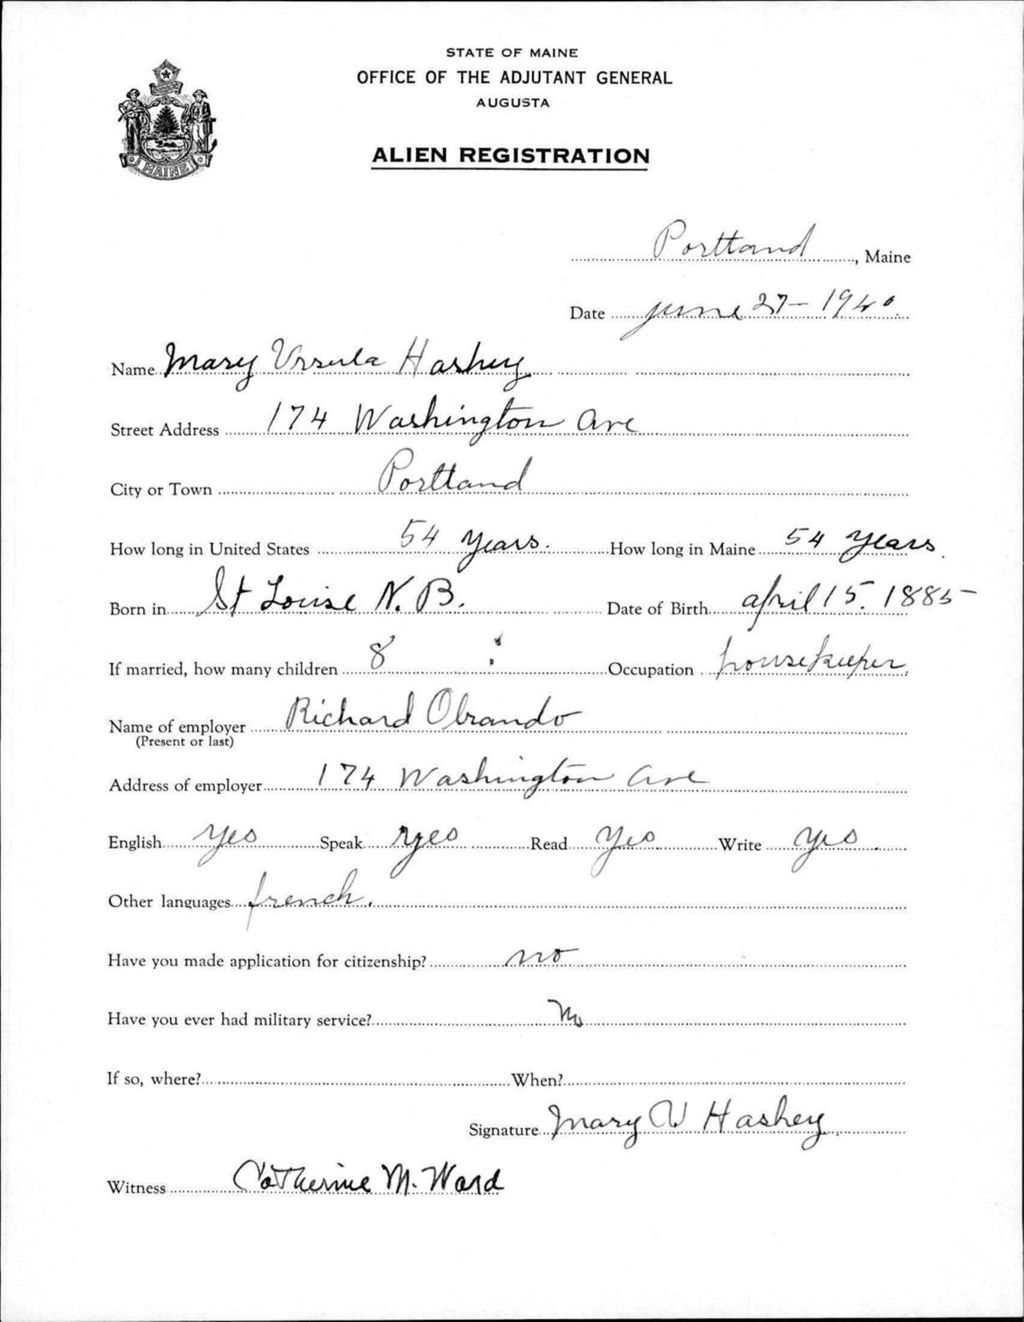 STATE OF MAINE
OFFICE OF THE ADJUTANT GENERAL
AUGUSTA
ALIEN REGISTRATION
MAINE
Portland, Maine
Date June 27-1940.
Name Mary Ursula Hashey
Street Address 174 Washington Ave
City or Town Portland
How long in United States 54 Years. How long in Maine 54 Years.
Born in St Louise N.B. Date of Birth april 15. 1885-
If married, how many children 8 Occupation housekeeper
Name of employer Richard Obrando
(Present or last)
Address of employer 174 Washington Ave
English yes Speak yes Read yes Write yes.
Other languages french.
Have you made application for citizenship? no
Have you ever had military service? No
If so, where? When?
Signature Mary U Hashey.
Witness Catherine M. Ward